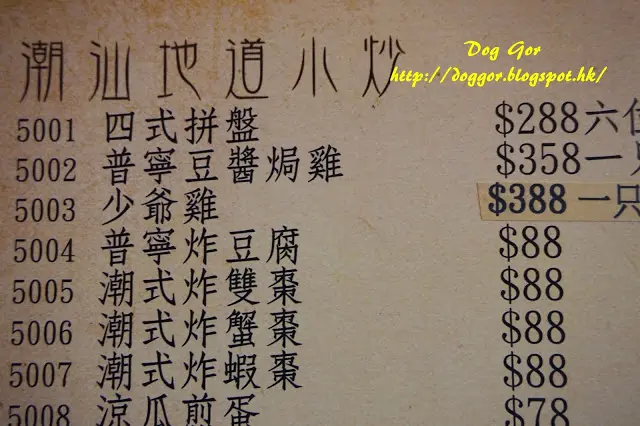 潮汕地道小炒
Dog Gor
http://doggor.blogspot.hk/
5001 四式拼盤 $288六位
5002 普寧豆醬焗雞 $358一只
5003 少爺雞 $388一只
5004 普寧炸豆腐 $88
5005 潮式炸雙棗 $88
5006 潮式炸蟹棗 $88
5007 潮式炸蝦棗 $88
5008 涼瓜煎蛋 $78